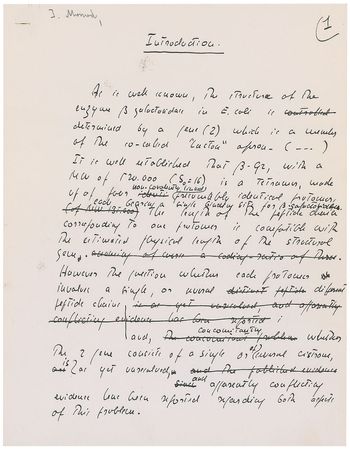 J. Monod,
1
Introduction.
As is well known, the structure of the
enzyme β galactosidase in E. coli is controlled
determined by a gene (Z) which is a member
of the so-called "lactose" operon. (---)
It is well established that β-Gz, with a
MW of 520.000 (S₀=16) is a tetramer, made
non-covalently linked
up of four identical (presumably identical protomers,
each bearing a single primary site for β-galactosides.
(of MW 135.000) The length of the peptide chain
corresponding to one protomer is compatible with
the estimated physical length of the structural
gene, assuming a coding ratio of three.
However the question whether each protomer
involves a single, or several distinct peptide different
peptide chains, is as yet unresolved, and apparently
conflicting evidence has been reported is
concomitantly
and, the concomitant problem whether
the Z gene consists of a single or of several cistrons,
is as yet unresolved, and the published evidence
since and apparently conflicting
evidence has been reported regarding both aspects
of this problem.